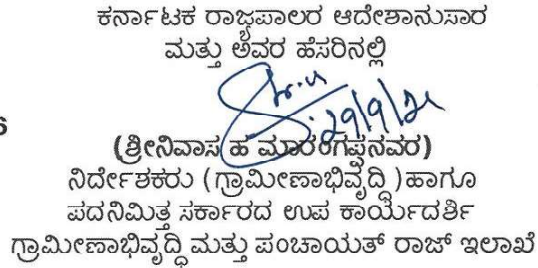 ಕರ್ನಾಟಕ ರಾಜ್ಯಪಾಲರ ಆದೇಶಾನುಸಾರ
ಮತ್ತು ಅವರ ಹೆಸರಿನಲ್ಲಿ
29/9/21
(ಶ್ರೀನಿವಾಸ ಹ ಮಾರಂಗಪ್ಪನವರ)
ನಿರ್ದೇಶಕರು (ಗ್ರಾಮೀಣಾಭಿವೃದ್ಧಿ)ಹಾಗೂ
ಪದನಿಮಿತ್ತ ಸರ್ಕಾರದ ಉಪ ಕಾರ್ಯದರ್ಶಿ
ಗ್ರಾಮೀಣಾಭಿವೃದ್ಧಿ ಮತ್ತು ಪಂಚಾಯತ್ ರಾಜ್ ಇಲಾಖೆ